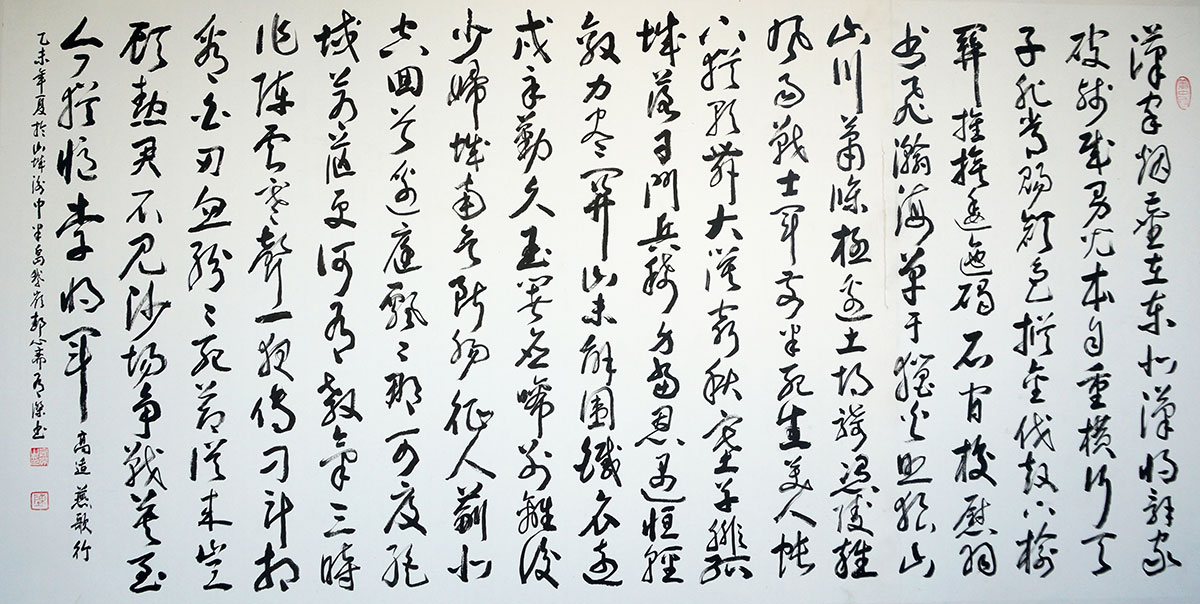 漢家烟塵在東北漢將辭家
破殘賊男兒本自重橫行天
子非常賜顏色摐金伐鼓下榆
關旌旆逶迤碣石間校尉羽
書飛瀚海單于獵火照狼山
山川蕭條極邊土胡騎憑陵雜
風雨戰士軍前半死生美人帳
下猶歌舞大漠窮秋塞草腓孤
城落日鬥兵稀身當恩遇恆輕
敵力盡關山未解圍鐵衣遠
戍辛勤久玉箸應啼別離後
少婦城南欲斷腸征人薊北
空回首邊庭飄々那可度絕
域蒼茫更何有殺氣三時
作陣雲寒聲一夜傳刁斗相
看白刃血紛々死節從來豈
顧勳君不見沙場爭戰苦至
今猶憶李將軍 高適 燕歌行
乙未年夏於山城渝中半島